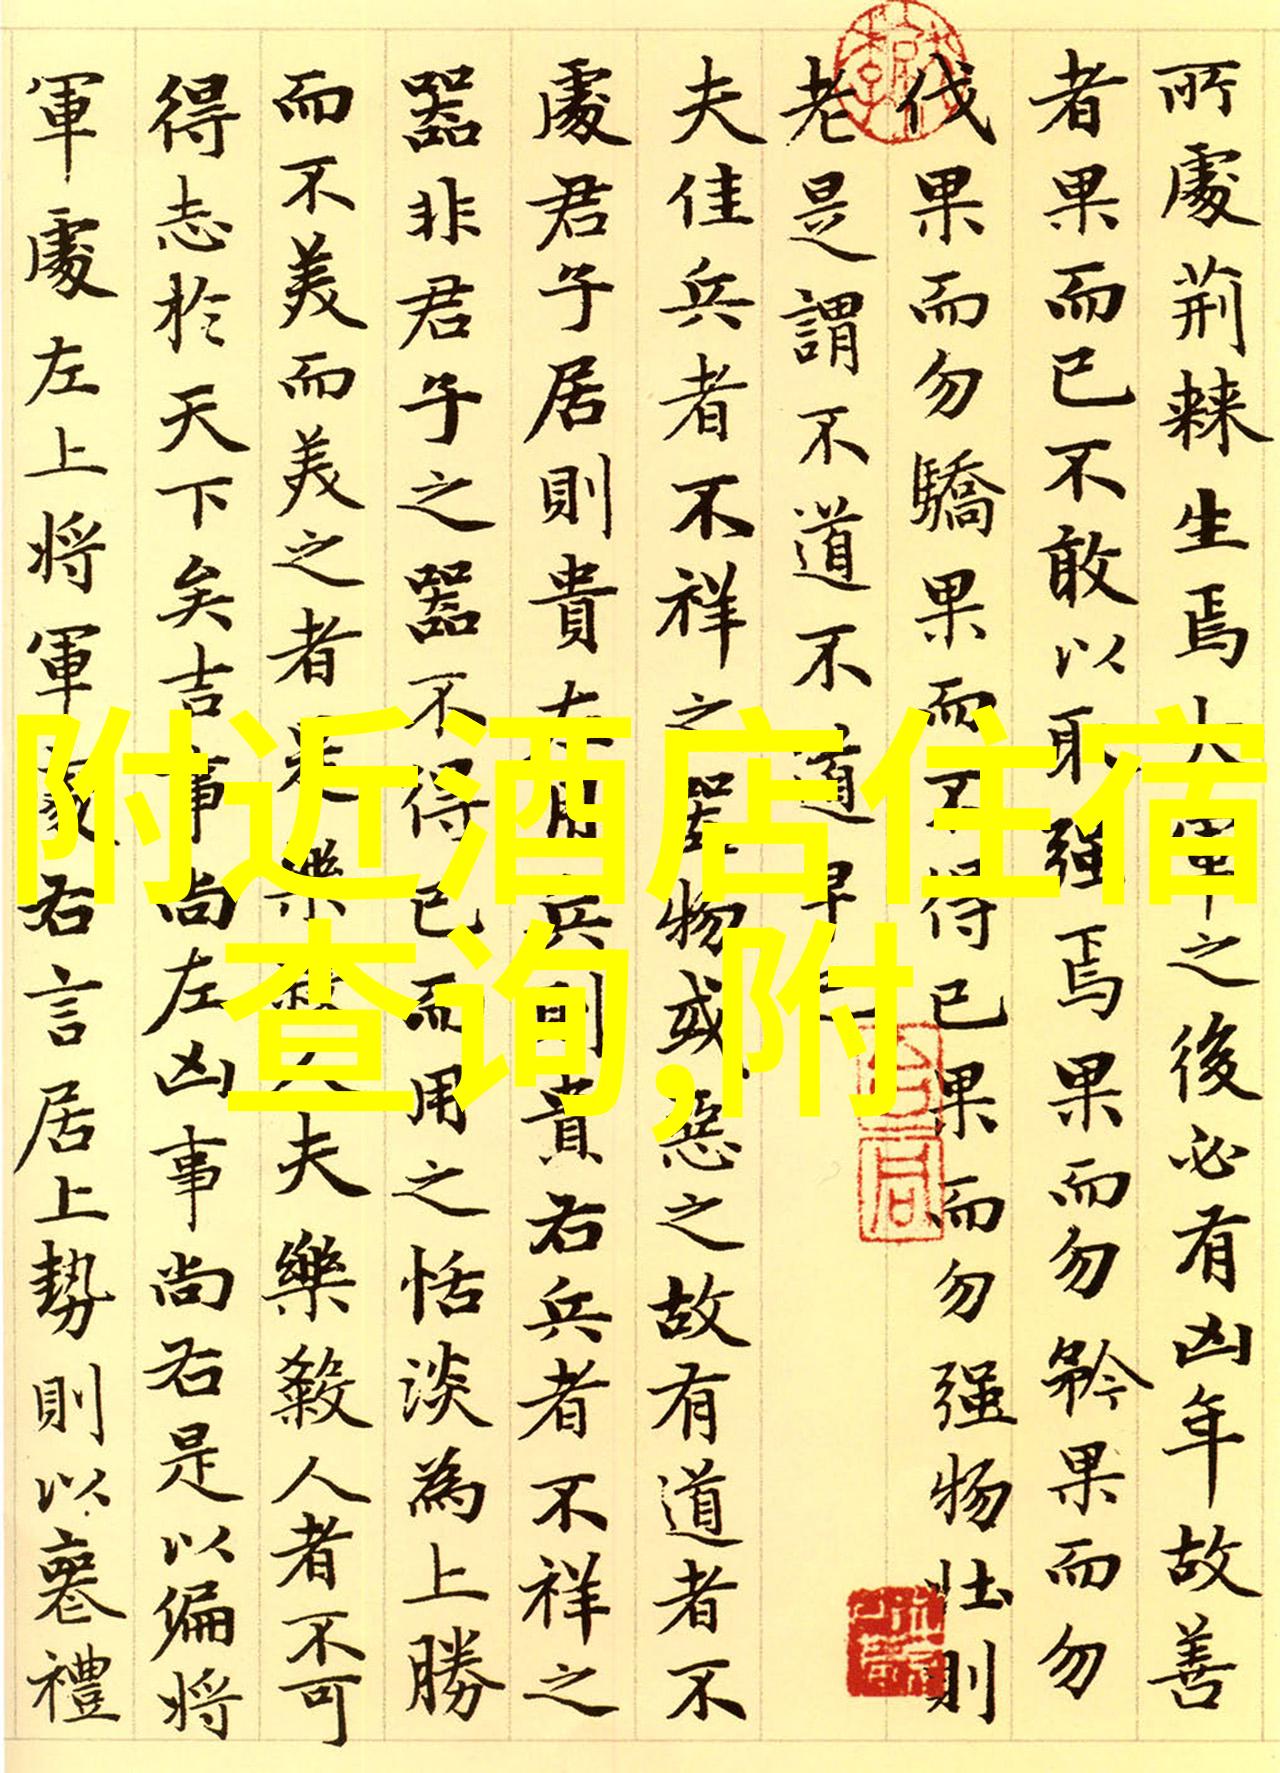 所處荊棘生焉大軍之後必有凶年故善
者果而已不敢以取強焉果而勿矜果而勿
伐果而勿驕果而不得已果而勿強物壯則
老是謂不道不道早已
夫佳兵者不祥之器物或惡之故有道者不
處君子居則貴左用兵則貴右兵者不祥之
器非君子之器不得已而用之恬淡為上勝
而不美而美之者是樂殺人夫樂殺人者不可
得志於天下矣吉事尚左凶事尚右是以偏將
軍處左上將軍處右言居上勢則以喪禮
附近酒店住宿
查询,附